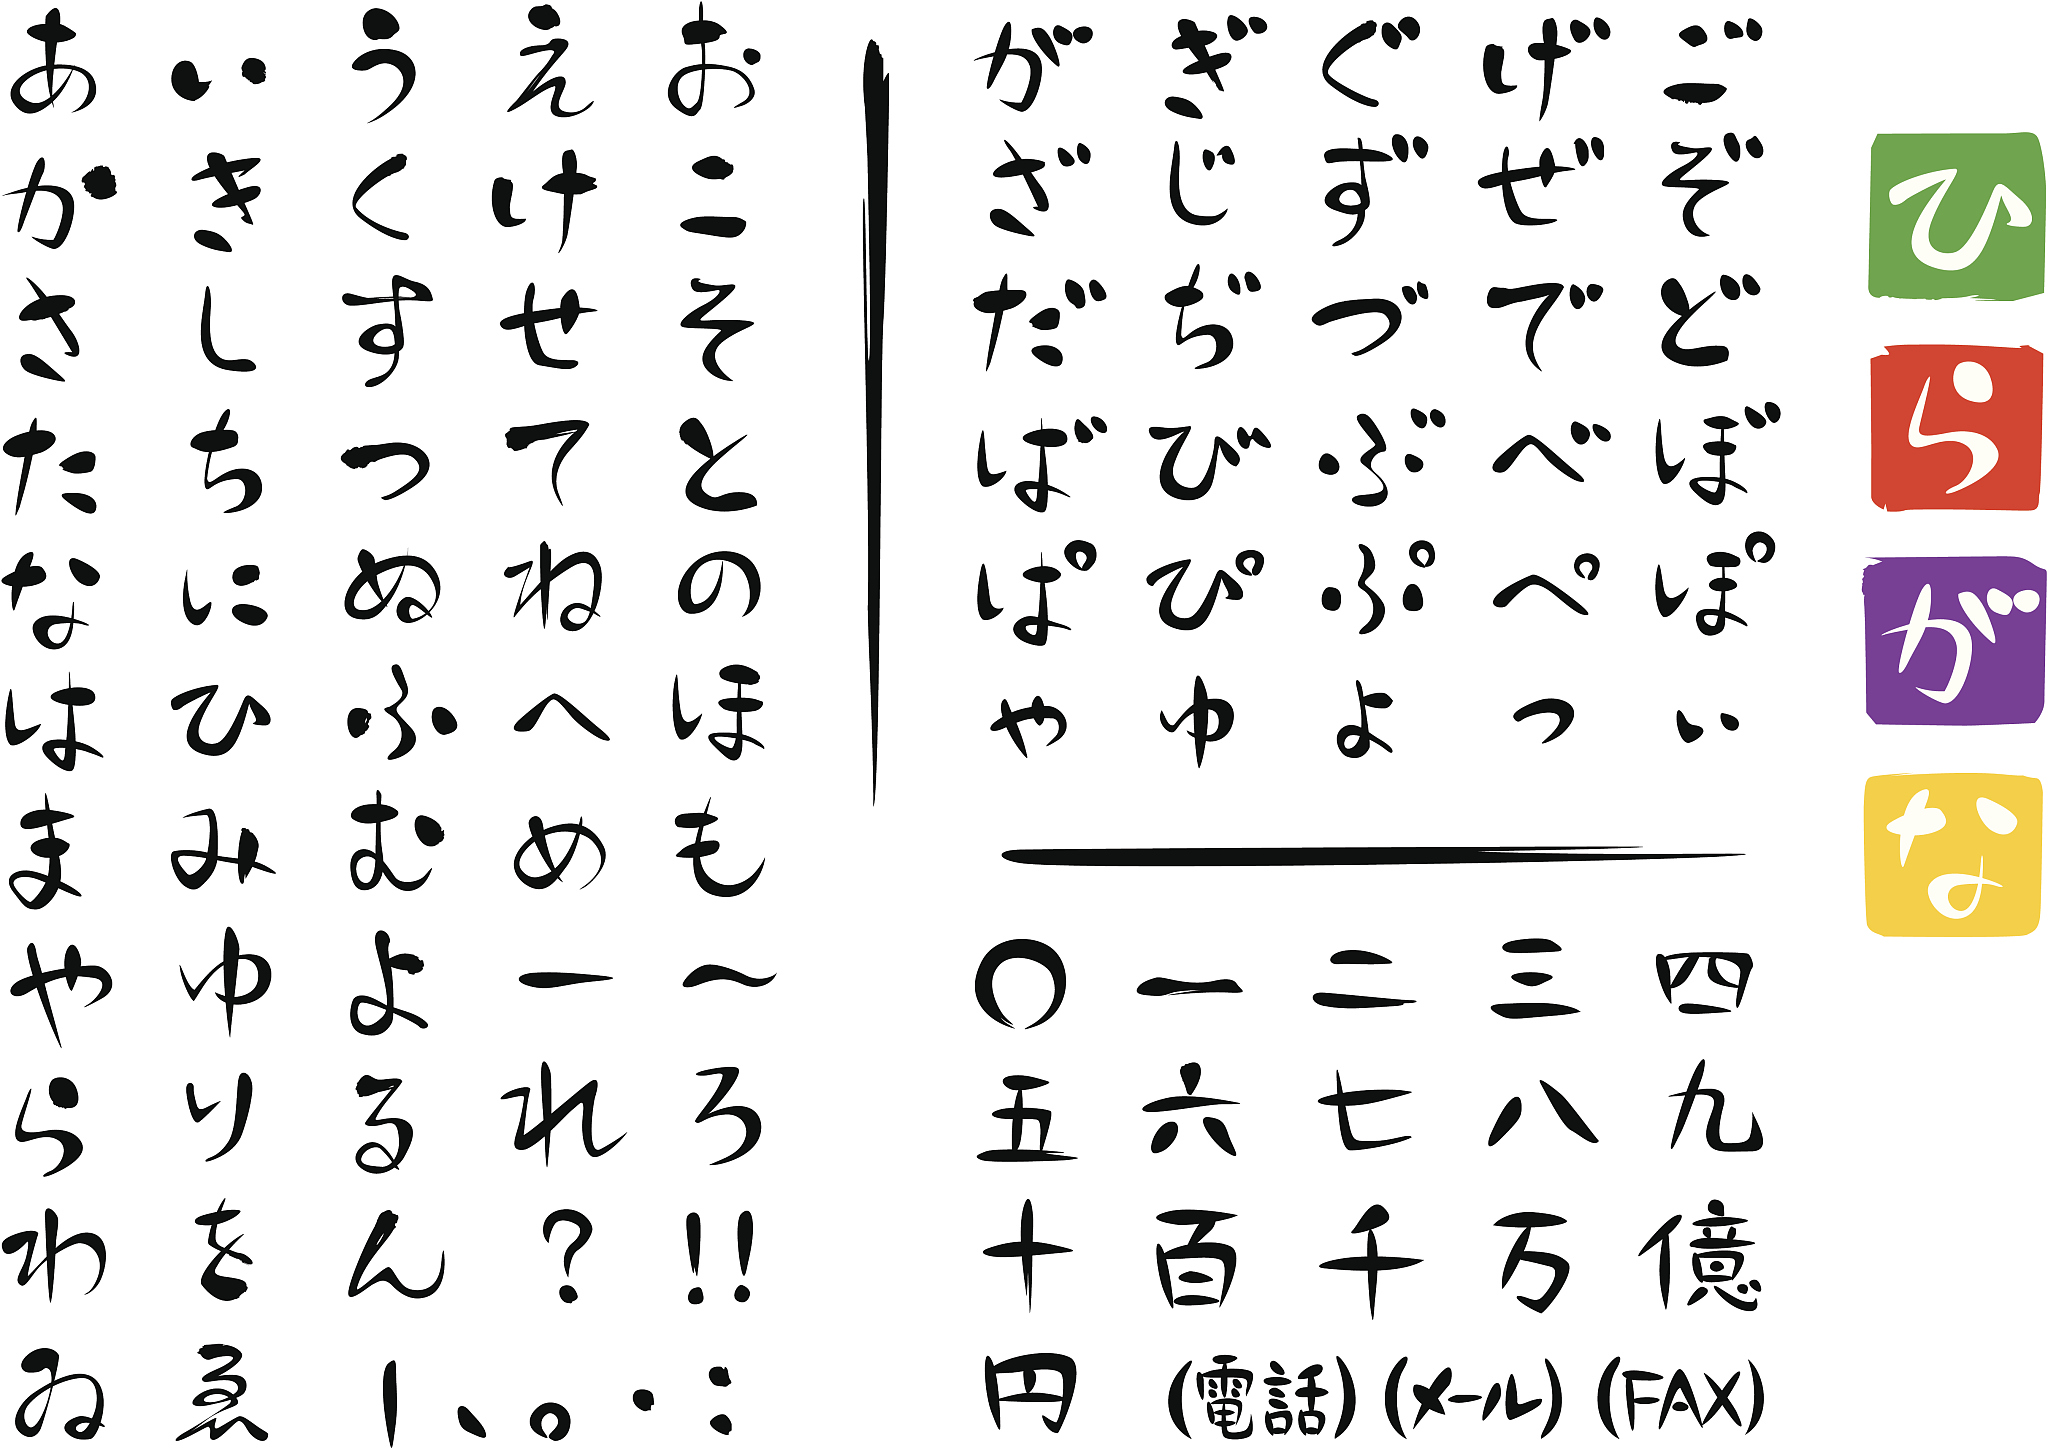 あいうえお
かきくけこ
さしすせそ
たちつてと
なにぬねの
はひふへほ
まみむめも
やゆよー〜
らりるれろ
わをん?!!
ゐゑ|、。・:
がぎぐげご
ざじずぜぞ
だぢづでど
ばびぶべぼ
ぱぴぷぺぽ
ゃゅょっぃ
〇一二三四
五六七八九
十百千万億
円(電話)(メール)(FAX)
ひ
ら
が
な